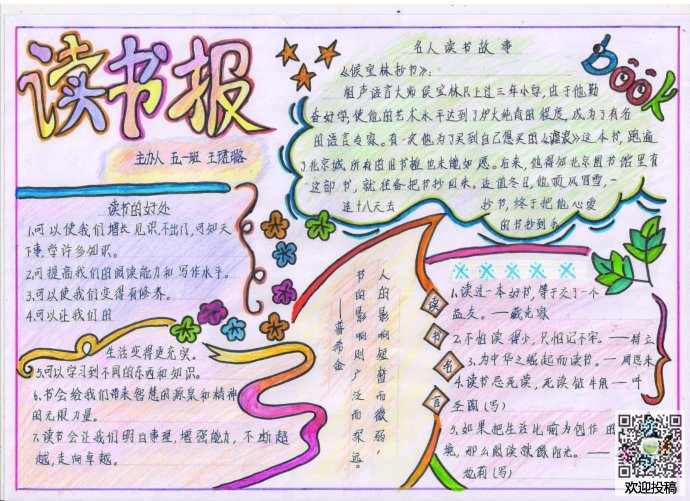 读书报
主办人 五一班 王
名人读书故事
Book
《侯宝林抄书》:
相声语言大师侯宝林只上过三年小学,由于他勤
奋好学,使他的艺术水平达到了炉火纯青的程度,成为了有名
的语言专家。有一次,他为了买到自己想买的《谑浪》这本书,跑遍
了北京城所有的旧书摊也未能如愿。后来,他得知北京图书馆里有
这部书,就准备把书抄回来。适值冬日,他顶风冒雪,一
连十八天去 抄书,终于把他心爱
的书抄到手
读书的好处
1.可以使我们增长见识,不出门,可知天
下事,学许多知识。
2.可提高我们的阅读能力和写作水平。
3.可以使我们变得有修养。
4.可以让我们的
生活变得更充实。
5.可以学习到不同的东西和知识。
6.书会给我们带来智慧的源泉和精神
的无限力量。
7.读书会让我们明白事理,增强能力,不断超
越,走向卓越。
人的影响短暂而微弱,
书的影响则广泛而深远。
——普希金
读书名言
1.读过一本好书,等于交了一个
益友。——臧克家
2.不怕读得少,只怕记不牢。——特立
3.为中华之崛起而读书。——周恩来
4.读书忌死读,死读钻牛角——叶
圣陶(写)
5.如果把生活比喻为创作的
境,那么阅读就像阳光。——
池莉(写)
欢迎投稿